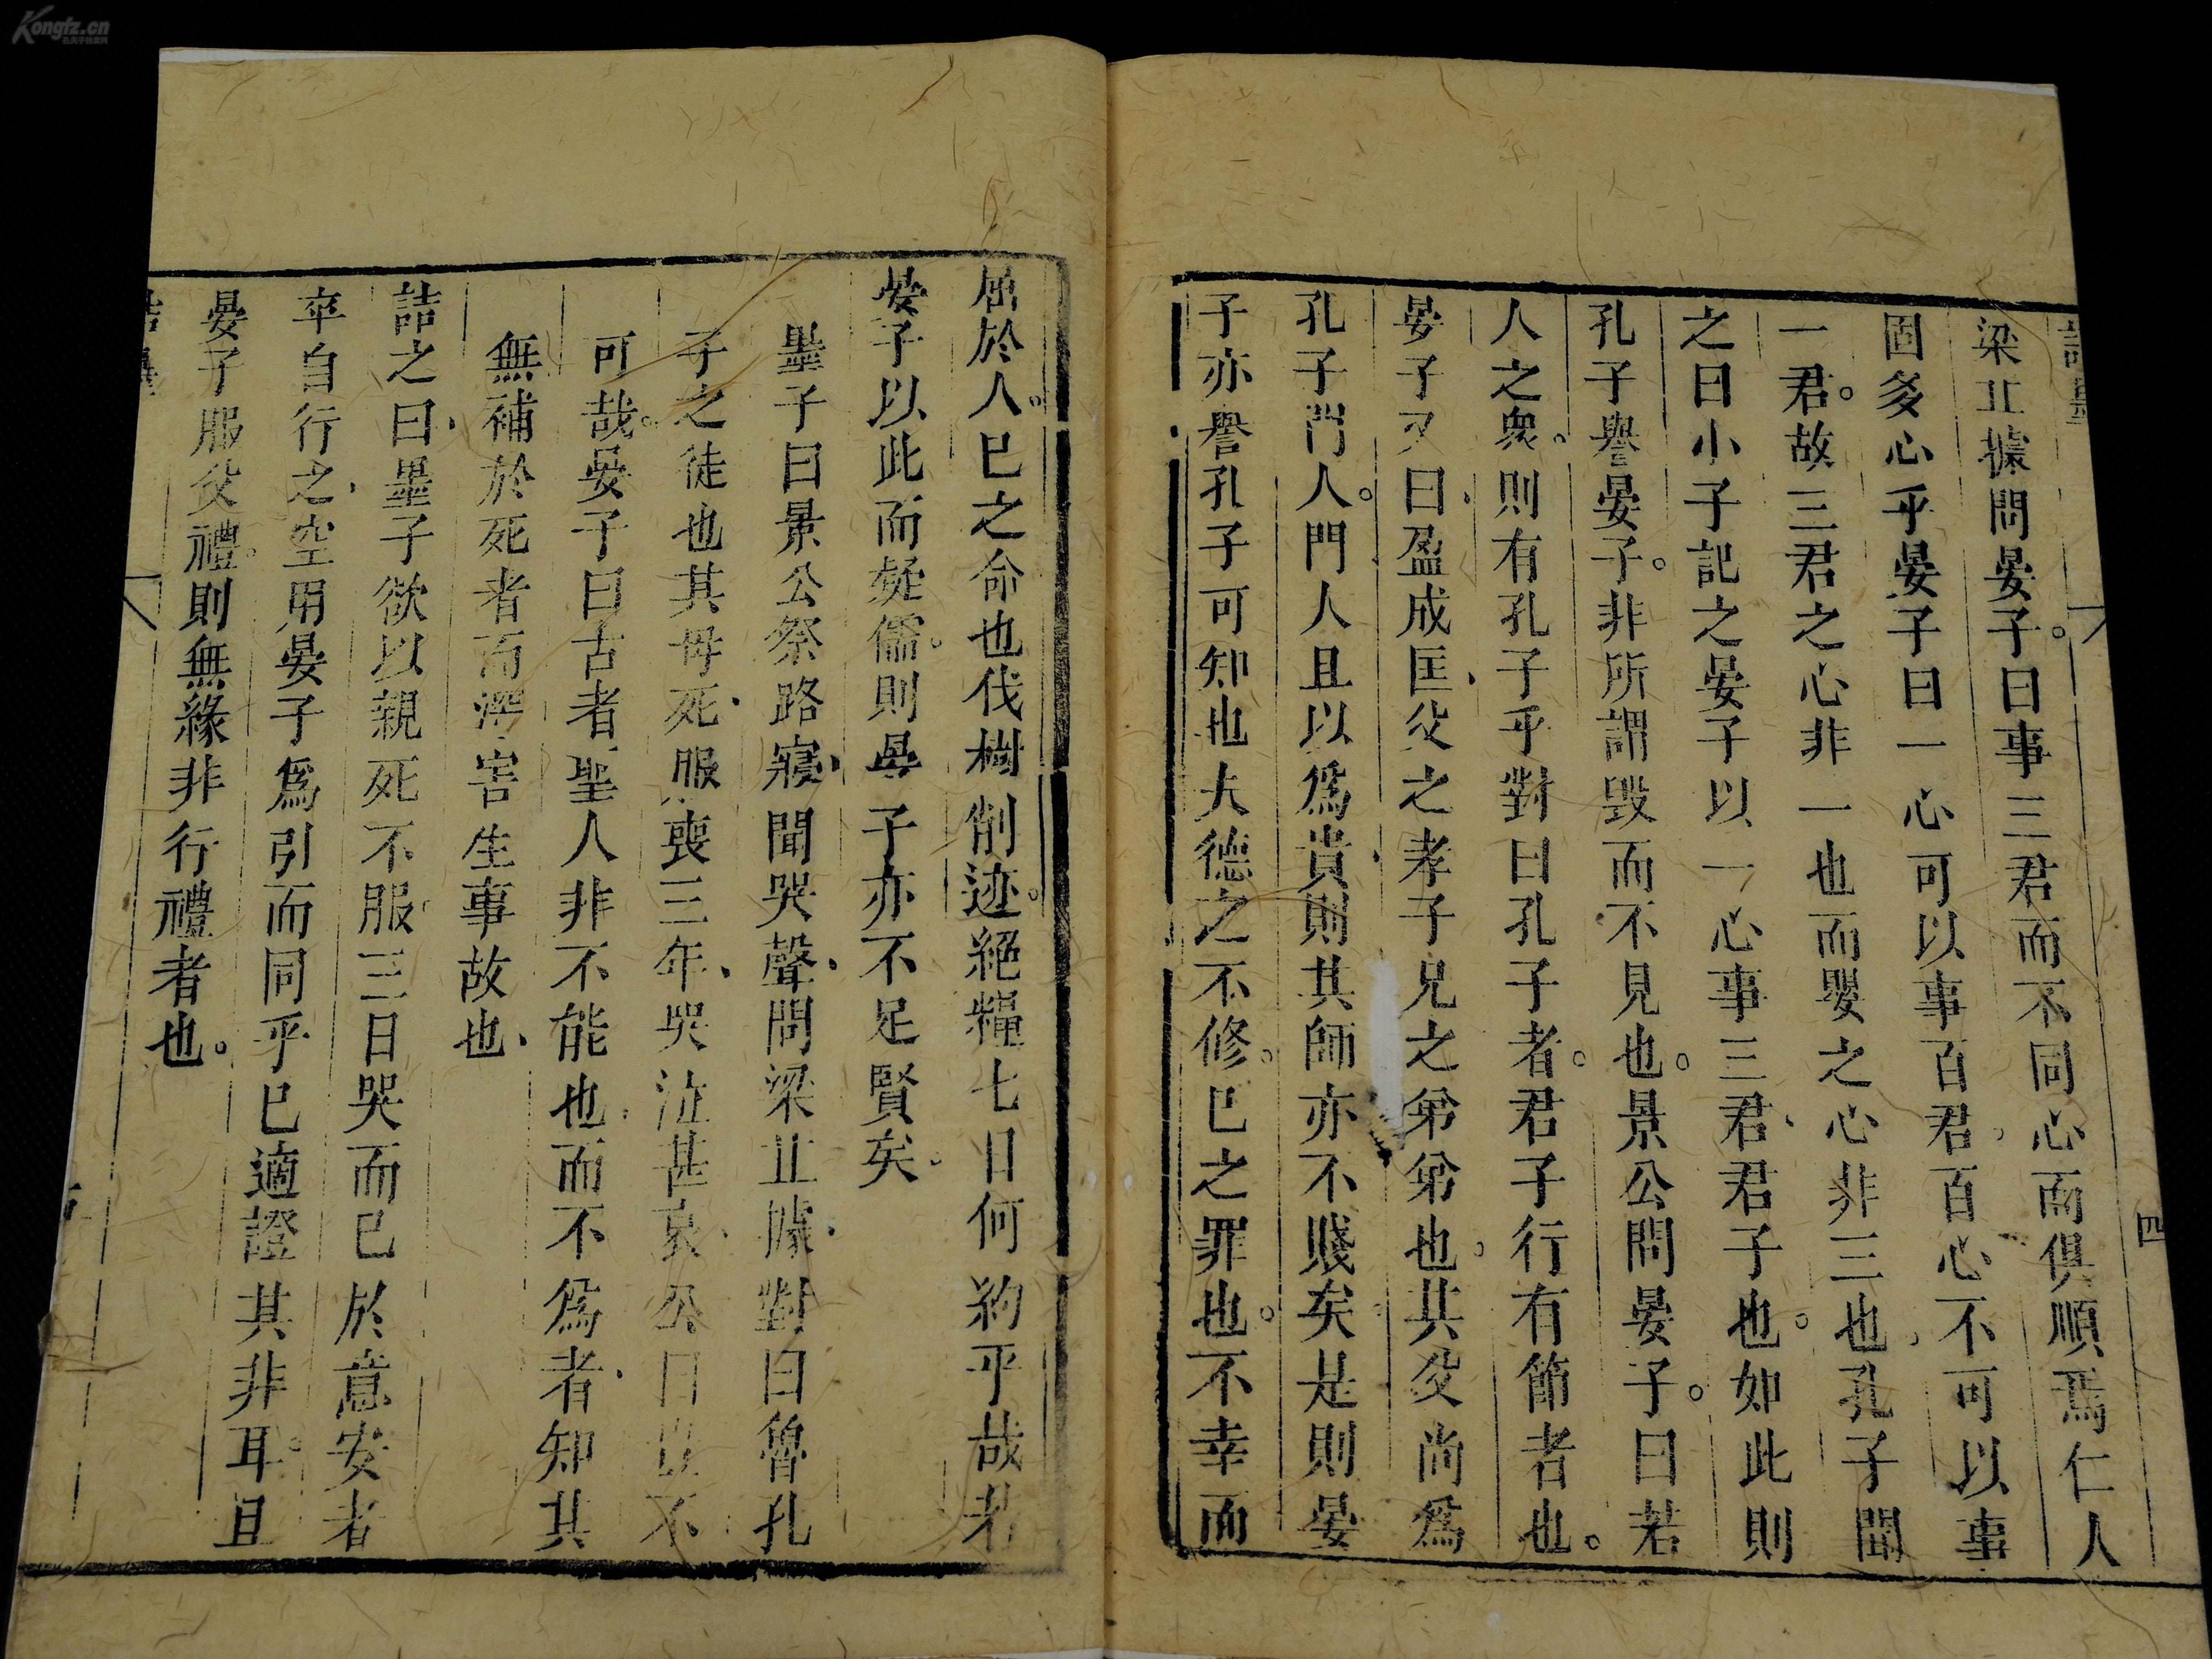 Kongfz.cn
孔夫子旧书网
四
梁丘據問晏子。曰事三君而不同心而俱順焉仁人
固多心乎晏子曰一心可以事百君、百心不可以事
一君。故三君之心非一也而嬰之心非三也、孔子聞
之曰小子記之晏子以一心事三君、君子也。如此則
孔子譽晏子。非所謂毀而不見也。景公問晏子。曰若
人之衆。則有孔子乎對曰孔子者。君子行有節者也。
晏子又曰、盈成匡、父之孝子兄之弟弟也。其父尚爲
孔子門人。門人且以爲貴、則其師亦不賤矣是則晏
子亦譽孔子可知也夫德之不修。已之罪也。不幸而
屈於人。已之命也伐樹削迹。絕糧七日何約乎哉若
晏子以此而疑儒。則晏子亦不足賢矣。
墨子曰景公祭路寢、聞哭聲、問梁丘據、對曰魯孔
子之徒也其母死、服喪三年、哭泣甚哀、公曰豈不
可哉。晏子曰古者聖人非不能也、而不爲者、知其
無補於死者而深害生事故也、
詰之曰、墨子欲以親死不服、三日哭而已於意安者
卒自行之、空用晏子爲引而同乎已適證其非耳。且
晏子服父禮。則無緣非行禮者也。